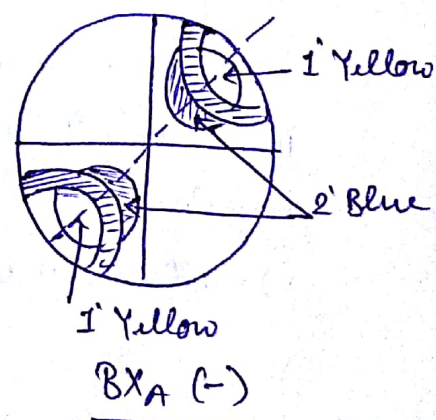 1° Yellow
2° Blue
1° Yellow
BXA (-)